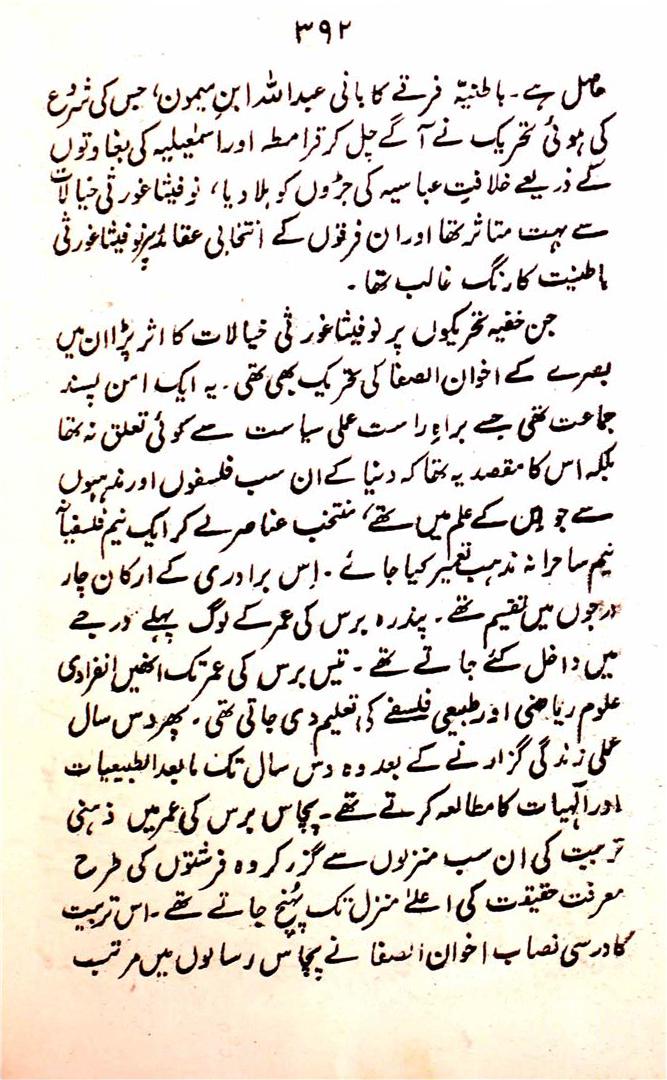 ۳۹۲
حاصل ہے۔ باطنیّہ فرقے کا بانی عبداللہ ابنِ میمون، جس کی شروع
کی ہوئی تحریک نے آگے چل کر قرامطہ اور اسمٰعیلیہ کی بغاوتوں
کے ذریعے خلافتِ عباسیہ کی جڑوں کو ہلا دیا، نوفیثاغورثی خیالات
سے بہت متاثر تھا اور ان فرقوں کے انتخابی عقائد پر نوفیثاغورثی
باطنیت کا رنگ غالب تھا۔
جن خفیہ تحریکوں پر نوفیثاغورثی خیالات کا اثر پڑا ان میں
بصرے کے اخوان الصفا کی تحریک بھی تھی۔ یہ ایک امن پسند
جماعت تھی جسے براہِ راست عملی سیاست سے کوئی تعلق نہ تھا
بلکہ اس کا مقصد یہ تھا کہ دنیا کے ان سب فلسفوں اور مذہبوں
سے جو اس کے علم میں تھے، منتخب عناصر لے کر ایک نیم فلسفیانہ
نیم ساحرانہ مذہب تعمیر کیا جائے۔ اِس برادری کے ارکان چار
درجوں میں تقسیم تھے۔ پندرہ برس کی عمر کے لوگ پہلے درجے
میں داخل کئے جاتے تھے۔ تیس برس کی عمر تک انھیں انفرادی
علوم ریاضی اور طبیعی فلسفے کی تعلیم دی جاتی تھی۔ پھر دس سال
عملی زندگی گزارنے کے بعد وہ دس سال تک مابعد الطبیعیات
اور الٰہیات کا مطالعہ کرتے تھے۔ پچاس برس کی عمر میں ذہنی
تربیت کی ان سب منزلوں سے گزر کر وہ فرشتوں کی طرح
معرفت حقیقت کی اعلےٰ منزل تک پہُنچ جاتے تھے۔ اس تربیت
کا درسی نصاب اخوان الصفا نے پچاس رسالوں میں مرتب